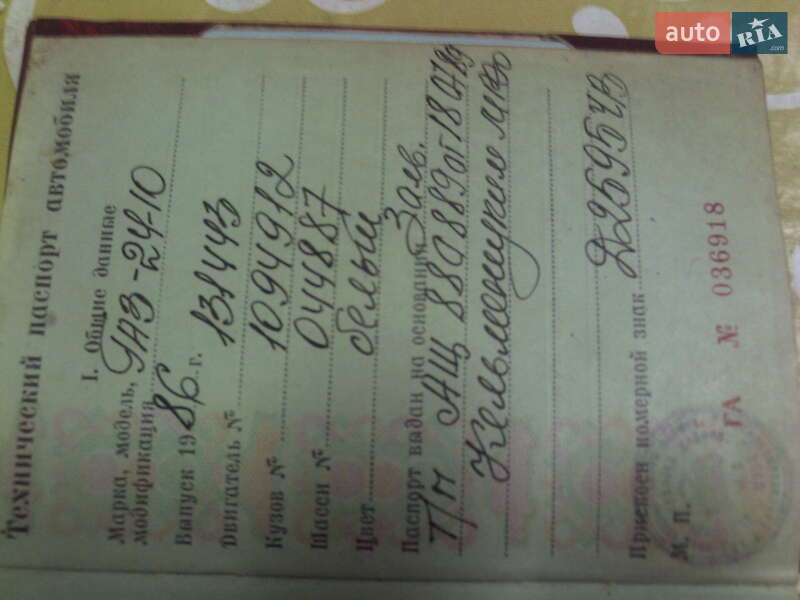 auto RIA
Технический паспорт автомобиля
I. Общие данные
Марка, модель, ГАЗ-24-10
модификация
Выпуск 1986 г.
Двигатель № 131443
Кузов № 1094912
Шасси № 044887
Цвет белый
Паспорт выдан на основании Заяв.
Т/п АЩ 889889 от 18 07 89
Кельменецким МРО
Присвоен номерной знак Д2595ЧВ
М. П. ГА № 036918